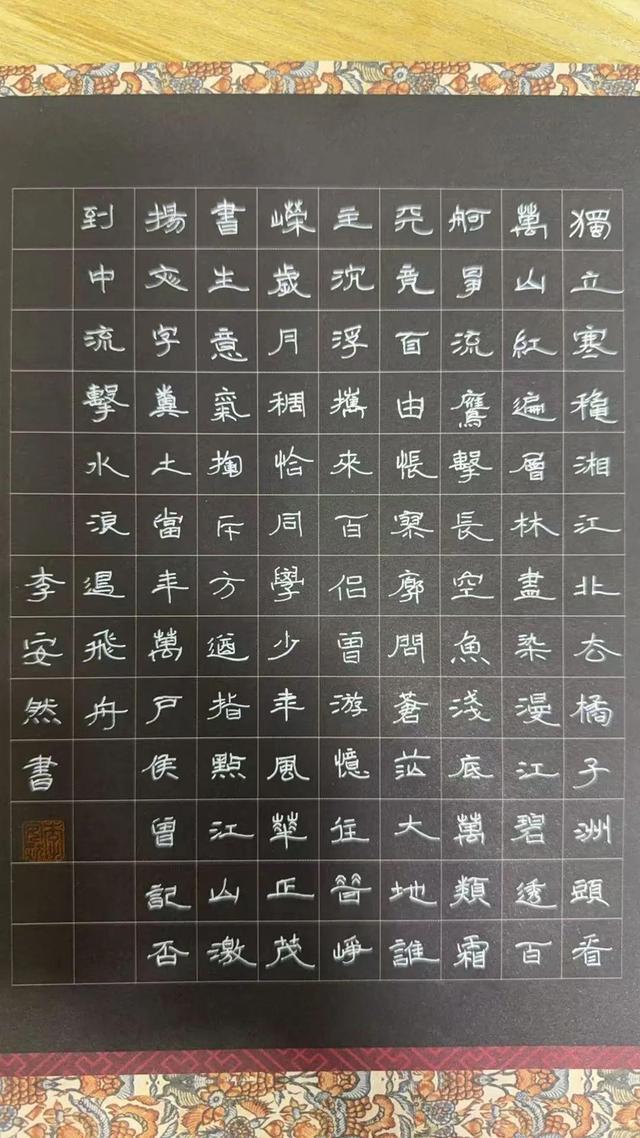 獨立寒穐湘江北去橘子洲頭看
萬山紅遍層林盡染漫江碧透百
舸爭流鷹擊長空魚淺底萬類霜
天竞自由悵寥廓問蒼茫大地誰
主沉浮攜來百侶曾游憶往昔崢
嶸歲月稠恰同學少年風華正茂
書生意氣揮斥方遒指點江山激
揚文字糞土當年萬戶侯曾記否
到中流擊水浪遏飛舟
李安然書